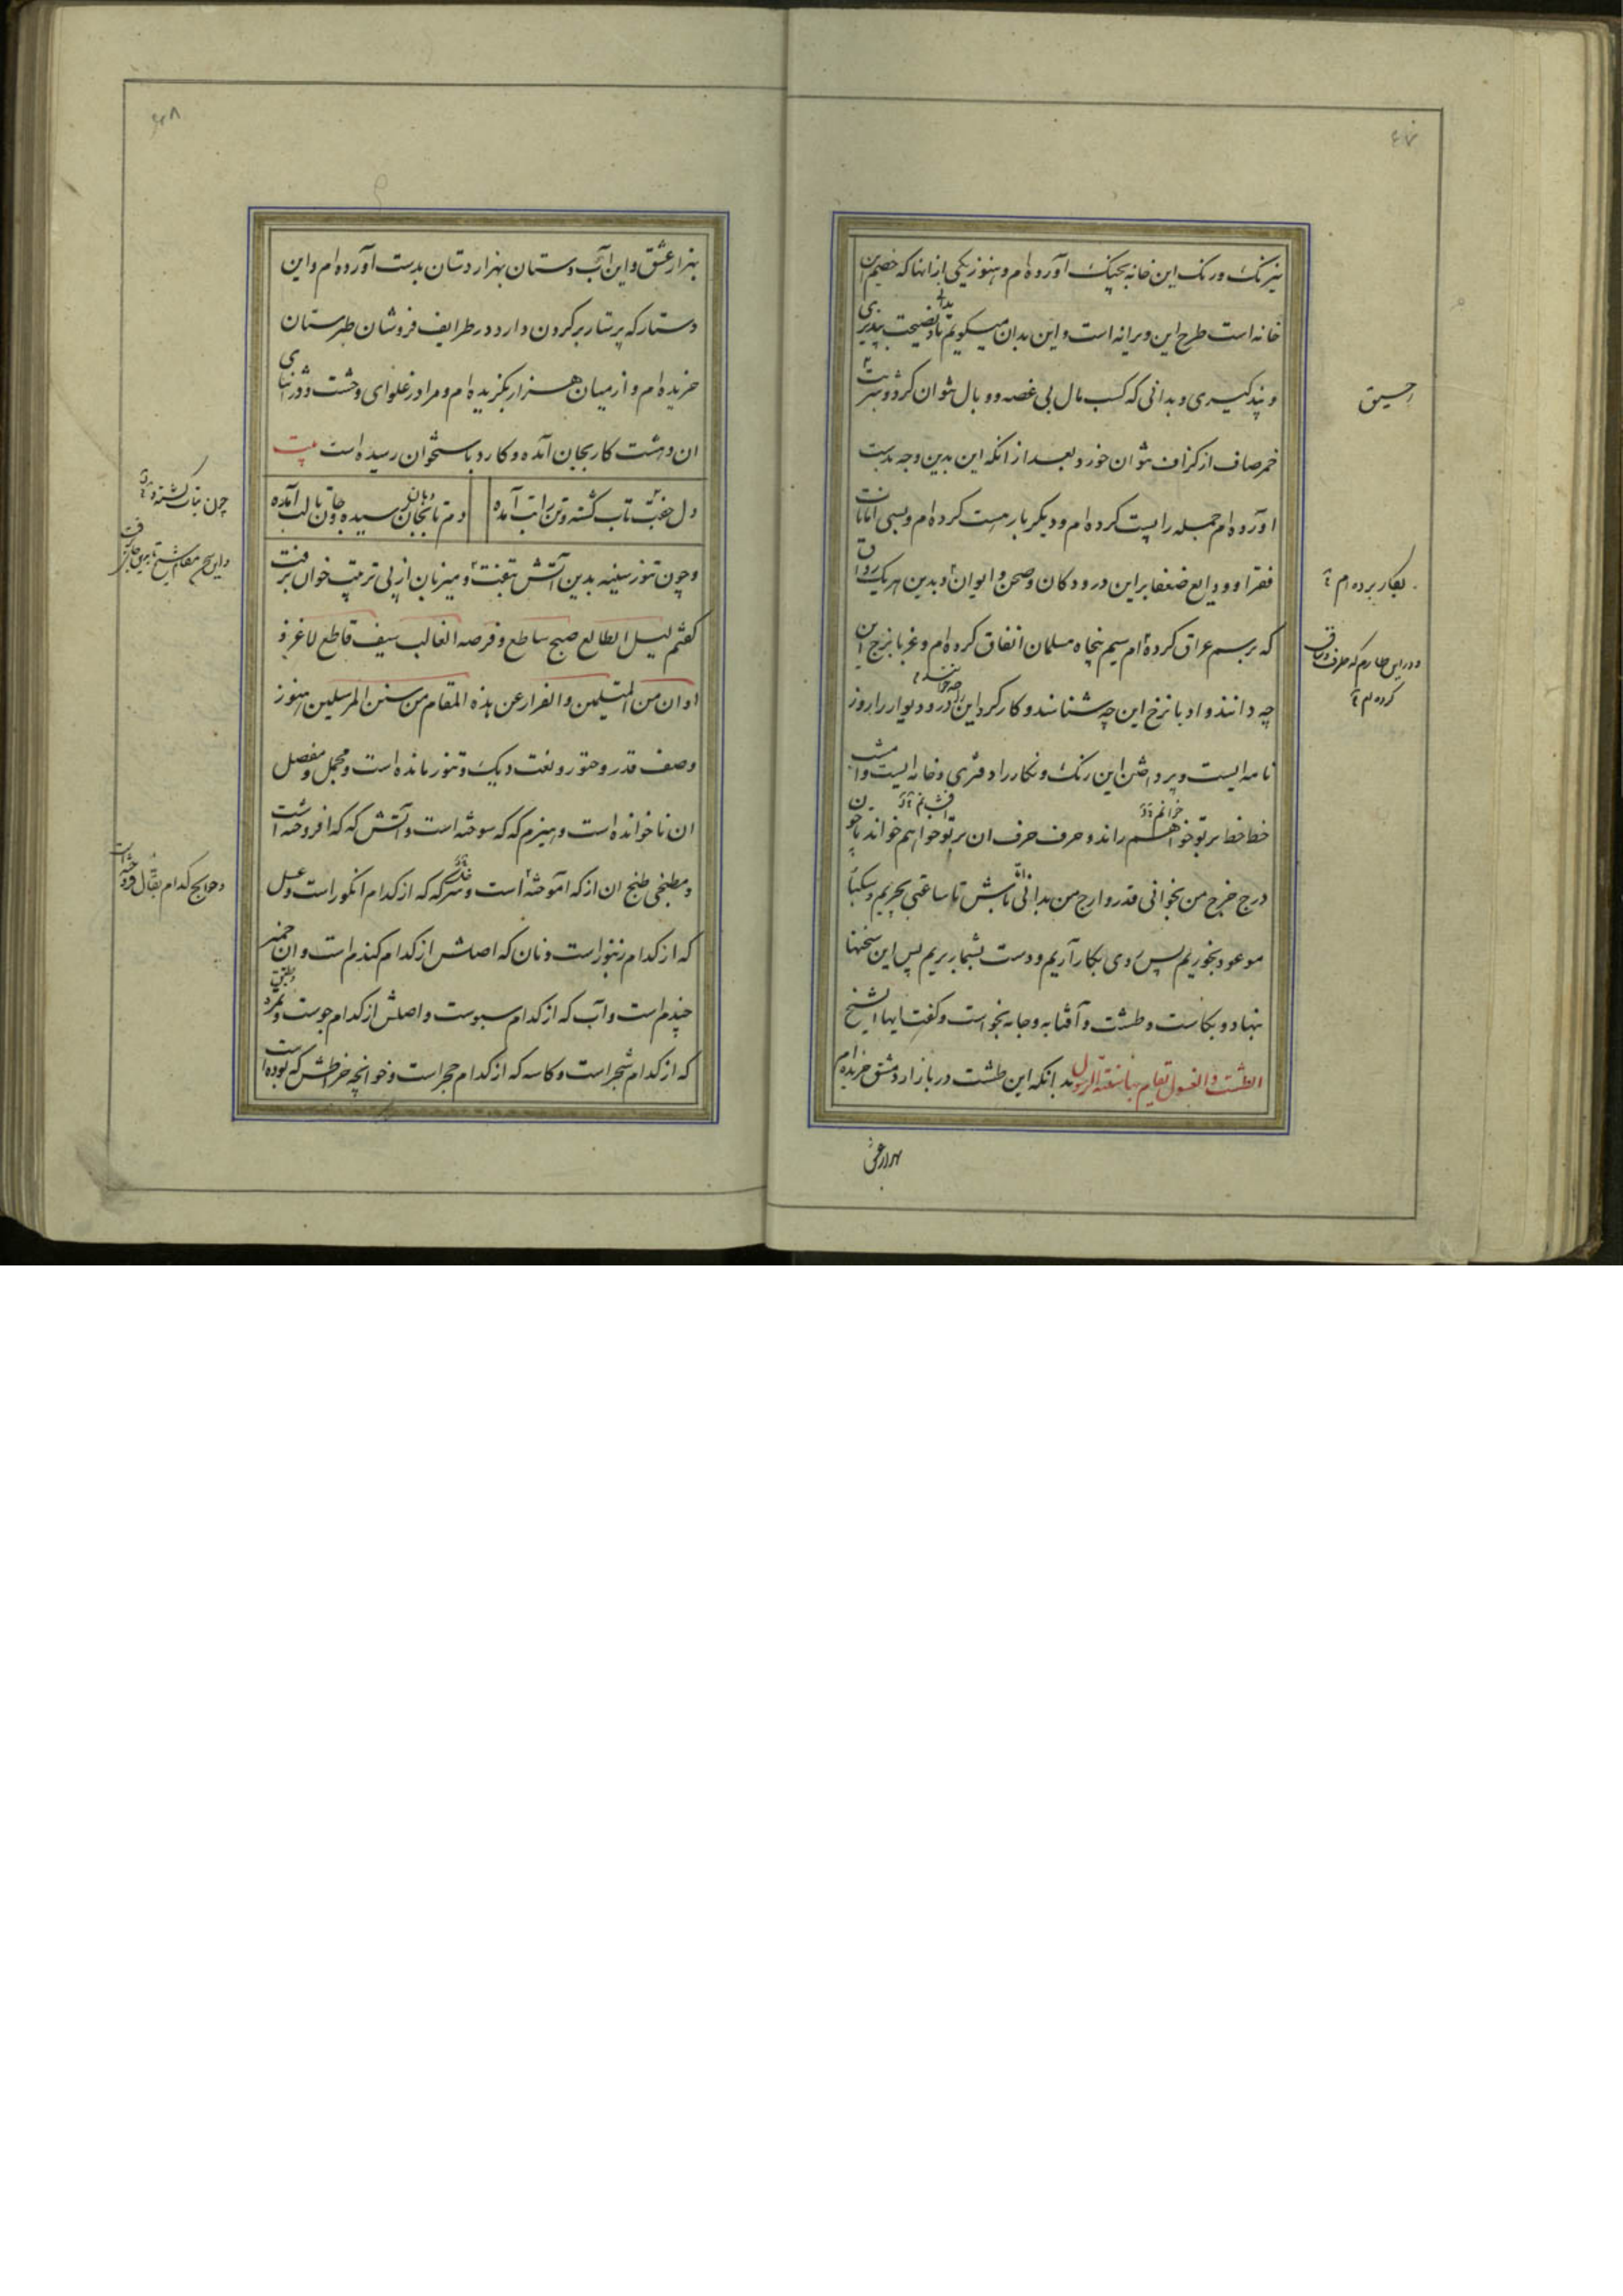 نیرنک ورنک این خانه بچنک آورده‌ام وهنوز یکی از انها که خصم این
خانه است طرح این ویرانه است واین بدان میکویم تا نصیحت پذیری
و پند کیری وبدانی که کسب مال بی غصه و وبال نتوان کرد وشربت
خمر صاف از کزاف نتوان خورد وبعد از انکه این بدین وجه بدست
اورده‌ام جمله را پست کرده‌ام ودیکر بار هست کرده‌ام وبسی امانات
فقرا وودایع ضعفا براین در ودکان وصحن وایوان وبدین هر یک رواق
که برسم عراق کرده‌ام سیم پنجاه مسلمان انفاق کرده‌ام وغربا نرخ این
چه دانند وادبا نرخ این چه شناسند وکارکرد این در ودیوار را روز
نامه ایست وپرداختن این رنک ونکار را دفتری وخانه ایست وامشب
خط خط بر تو خواهم راند وحرف حرف ان بر تو خواهم خواند تا چون
درج خرج من بخوانی قدر وارج من بدانی باش تا ساعتی بچریم وسکبا
موعود بخوریم پس روی بکار آریم ودست بشمار بریم پس این سخنها
بنهاد وبخاست وطشت وآفتابه وجامه بخواست وکفت ایها الشیخ
بدانکه این طشت در بازار دمشق خریده‌ام
رحیق
بکار برده‌ام
کرده‌ام
بهزار عشق واین آب دستان بهزار دستان بدست آورده‌ام واین
دستار که پرستار بر کردن دارد در طرایف فروشان طبرستان
خریده‌ام واز میان هزار بکزیده‌ام ومرا در غلوای وحشت ودر اثنای
ان دهشت کار بجان آمده وکارد باستخوان رسیده است بیت
دل جفت تاب کشته وتن را تب آمده
دم تا دهان رسیده وجان تا لب آمده
وچون تنور سینه بدین آتش بتفت ومیزبان از پی ترتیب خوان برفت
کفتم لیل الطالع صبح ساطع وفرصه الغالب سیف قاطع لا غرو
او ان من المتیلمین والفرار عن هذه المقام من سنن المرسلین هنوز
وصف قدر وحتور ونعت دیک وتنور مانده است ومجمل ومفصل
ان ناخوانده است وهیزم که که سوخته است وآتش که که افروخته است
ومطبخی طبخ ان از که آموخته است وسرکه که از کدام انکور است وعسل
که از کدام زنبور است ونان که اصلش از کدام کندم است وان خمیر
چندم است وآب که از کدام سبوست واصلش از کدام جوست
که از کدام شجر است وکاسه که از کدام حجر است وخوانچه خراطش که بوده است